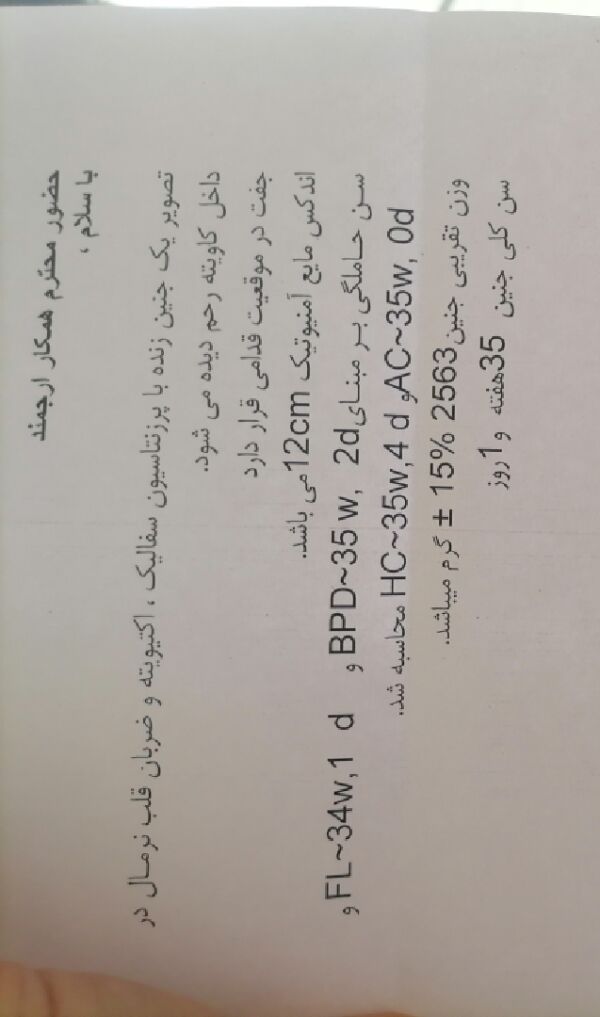 حضور محترم همکار ارجمند
با سلام ،
تصویر یک جنین زنده با پرزنتاسیون سفالیک ، اکتیویته و ضربان قلب نرمال در
داخل کاویته رحم دیده می شود.
جفت در موقعیت قدامی قرار دارد
اندکس مایع آمنیوتیک 12cm می باشد.
سن حاملگی بر مبنای BPD~35 w, 2d و FL~34w,1 d و
AC~35w, 0d و HC~35w,4 d محاسبه شد.
وزن تقریبی جنین 2563 ± 15% گرم میباشد.
سن کلی جنین 35 هفته و 1 روز